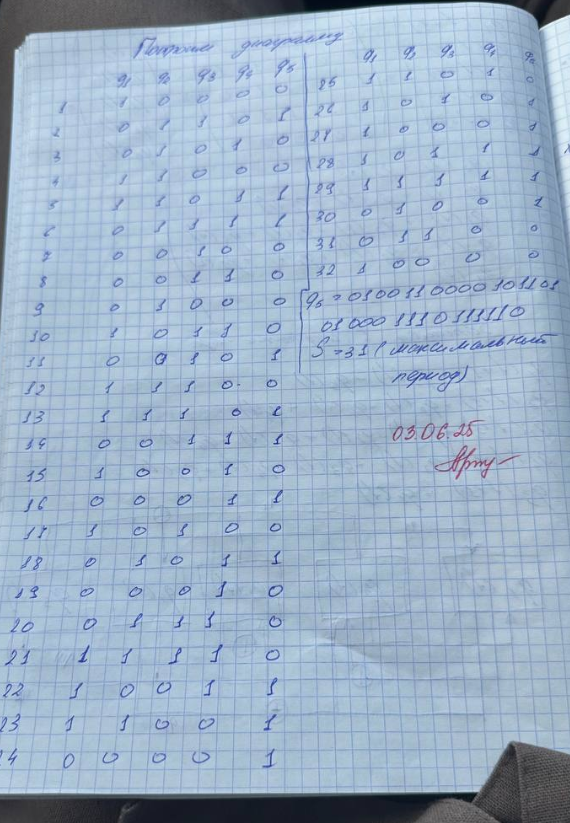 Построим диаграмму
q1 q2 q3 q4 q5
1 1 0 0 0 0
2 0 1 1 0 1
3 0 1 0 1 0
4 1 1 0 0 0
5 1 1 0 1 1
6 0 1 1 1 1
7 0 0 1 0 0
8 0 0 1 1 0
9 0 1 0 0 0
10 1 0 1 1 0
11 0 0 1 0 1
12 1 1 1 0 0
13 1 1 1 0 1
14 0 0 1 1 1
15 1 0 0 1 0
16 0 0 0 1 1
17 1 0 1 0 0
18 0 1 0 1 1
19 0 0 0 1 0
20 0 1 1 1 0
21 1 1 1 1 0
22 1 0 0 1 1
23 1 1 0 0 1
24 0 0 0 0 1
q1 q2 q3 q4 q5
25 1 1 0 1 0
26 1 0 1 0 1
27 1 0 0 0 1
28 1 0 1 1 1
29 1 1 1 1 1
30 0 1 0 0 1
31 0 1 1 0 0
32 1 0 0 0 0
q5 = 0100110000101101
010001110111110
S = 31 (максимальный
период)
03.06.25